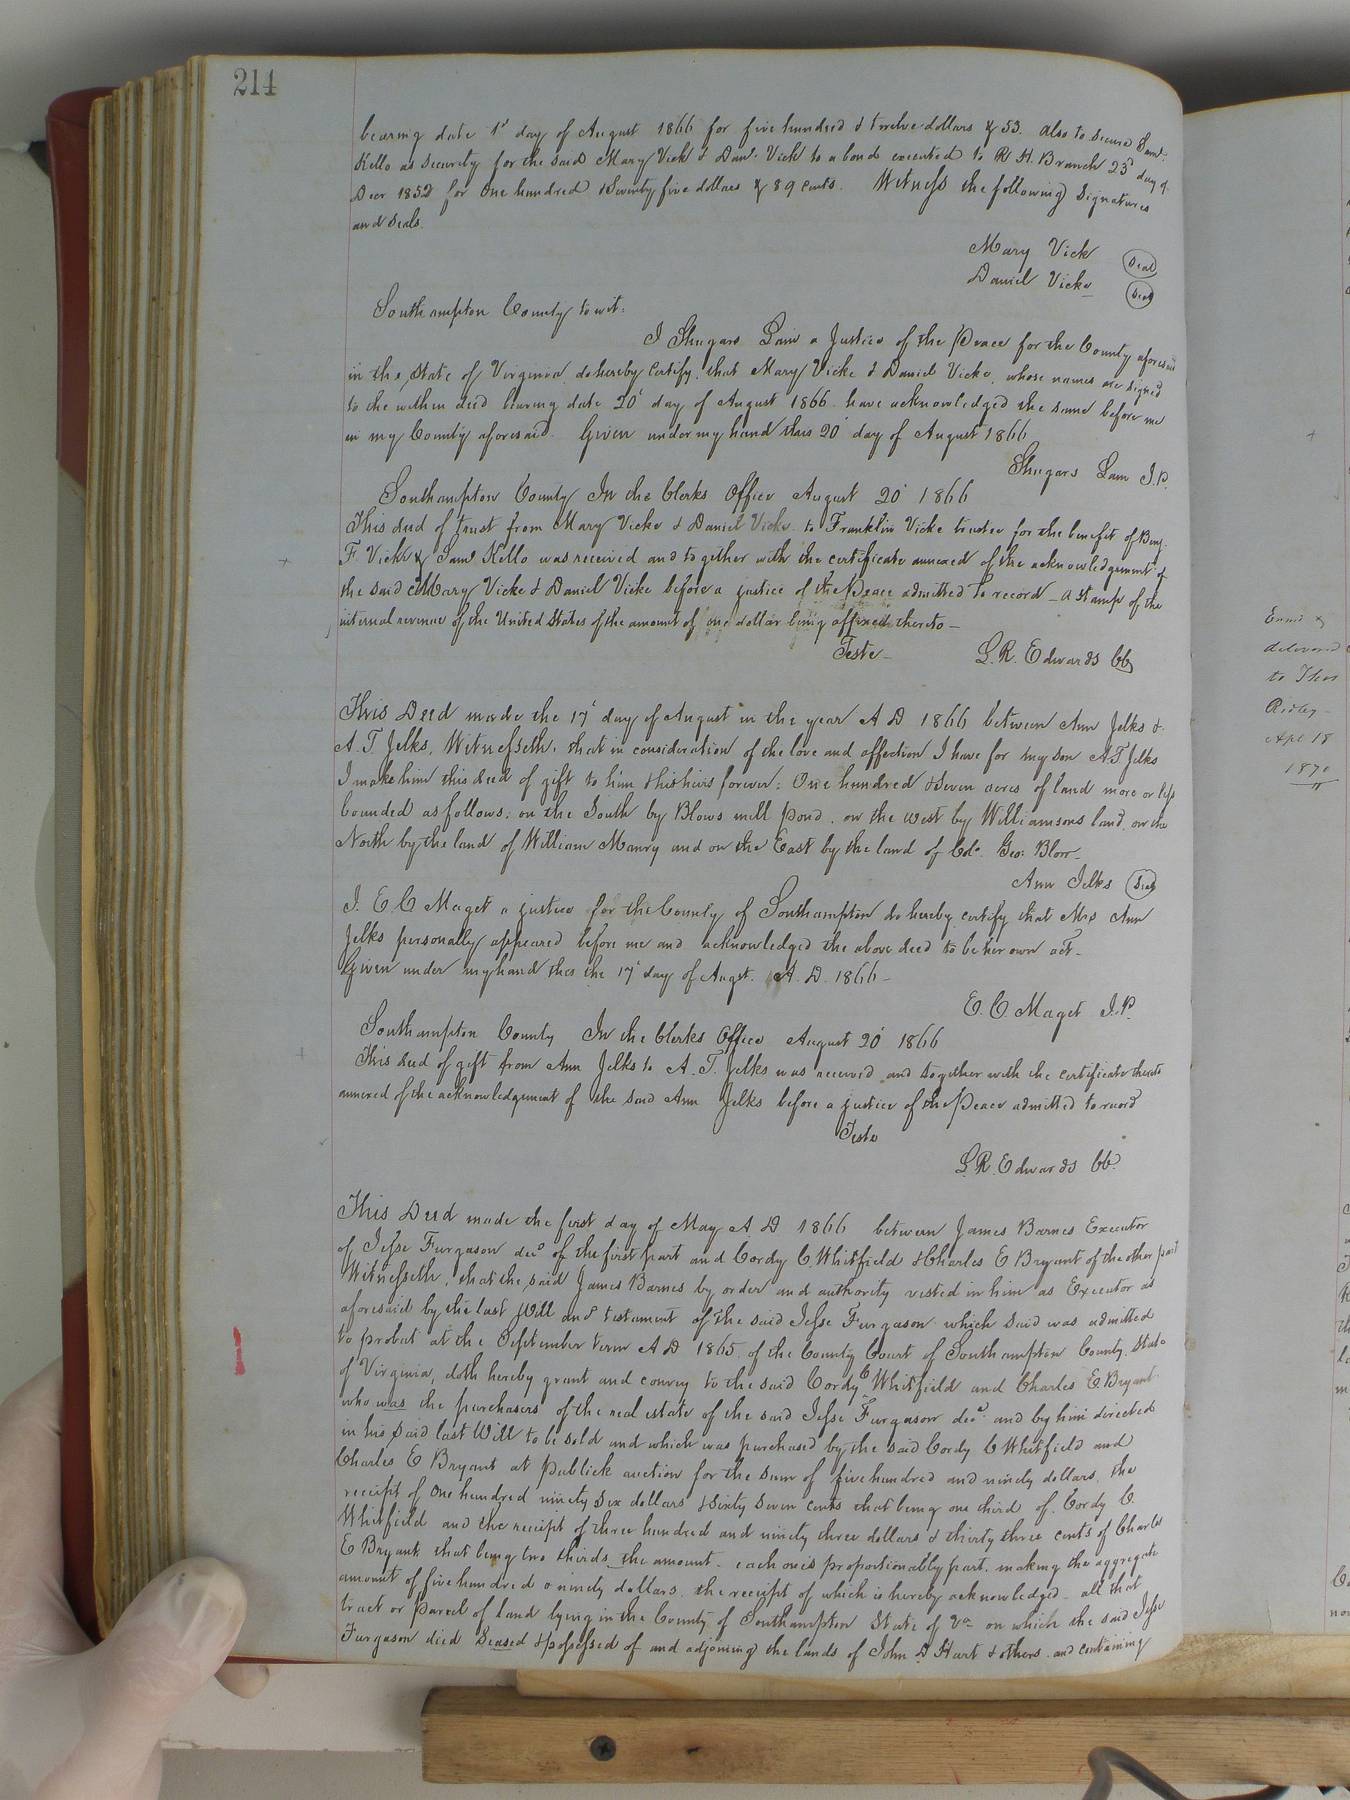 214
bearing date 1st day of August 1866 for five hundred & twelve dollars & 53. also to secure Saml.
Kello as security for the said Mary Vick & Danl. Vick to a bond executed to R H. Branch 23d day of
Decr 1852 for One hundred & Seventy five dollars & 89 cents. Witness the following signatures
and seals.
Mary Vick Seal
Daniel Vicke Seal
Southampton County to wit:
I Shugars Lain a Justice of the Peace for the County aforesaid
in the State of Virginia do hereby certify, that Mary Vicke & Daniel Vicke, whose names are signed
to the within deed bearing date 20' day of August 1866 have acknowledged the same before me
in my County aforesaid. Given under my hand this 20' day of August 1866
Shugars Lain J.P.
Southampton County In the Clerks Office August 20' 1866
This deed of trust from Mary Vicke & Daniel Vicke to Franklin Vicke trustee for the benefit of Benj.
F Vick & Saml Kello was received and together with the certificate annexed of the acknowledgement of
the said Mary Vicke & Daniel Vicke before a justice of the Peace admitted to record _ a stamp of the
internal revenue of the United States of the amount of one dollar being affixed thereto _
Teste _ L. R. Edwards CC
This Deed made the 17' day of August in the year A D 1866 between Ann Jelks &
A. T. Jelks, Witnesseth, that in consideration of the love and affection I have for my son A.T. Jelks
I make him this deed of gift to him & his heirs forever; One hundred & Seven acres of land more or less
bounded as follows; on the South by Blows mill Pond, on the west by Williamsons land, on the
North by the land of William Maury and on the East by the land of Col. Geo: Blow _
Ann Jelks Seal
I. E C Maget a justice for the County of Southampton do hereby certify that Mrs Ann
Jelks personally appeared before me and acknowledged the above deed to be her own act _
Given under my hand this the 17' day of Augst. A. D. 1866 _
E. C. Maget J.P.
Southampton County In the Clerks Office August 20' 1866
This deed of gift from Ann Jelks to A. T. Jelks was received and together with the certificate thereto
annexed of the acknowledgement of the said Ann Jelks before a justice of the Peace admitted to record
Teste
L.R. Edwards CC.
This Deed made the first day of May A. D 1866 between James Barnes Executor
of Jesse Furgason decd of the first part and Cordy C. Whitfield & Charles E Bryant of the other part
Witnesseth, that the said James Barnes by order and authority vested in him as Executor as
aforesaid by the last Will and testament of the said Jesse Furgason which said was admitted
to probat at the September term A D 1865 of the County Court of Southampton County State
of Virginia, doth hereby grant and convey to the said Cordy C Whitfield and Charles E. Bryant
who was the purchasers of the real estate of the said Jesse Furgason decd. and by him directed
in his said last Will to be sold and which was purchased by the said Cordy C Whitfield and
Charles E Bryant at Publick auction for the sum of five hundred and ninety dollars, the
receipt of One hundred ninety six dollars & sixty seven cents that being one third of Cordy C.
Whitfield and the receipt of three hundred and ninety three dollars & thirty three cents of Charles
E Bryant that being two thirds the amount _ each ones proportionably part, making the aggregate
amount of five hundred & ninety dollars the receipt of which is hereby acknowledged _ all that
tract or parcel of land lying in the County of Southampton State of Va on which the said Jesse
Furgason died Seased & possessed of and adjoining the lands of John D Hart & others and containing
delivered
to Thos
Ridley _
Apl 18
1870